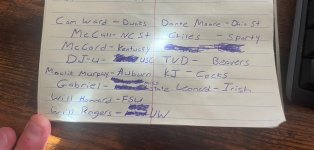 Cam Ward - Ducks Dante Moore - Ohio St
McCall - NC St Chiles - Sparty
McCord - Kentucky
DJ-U - USC TVD - Beavers
Malik Murphy - Auburn KJ - Cocks
Gabriel - State Leonard - Irish
Will Howard - FSU
Will Rogers - UW